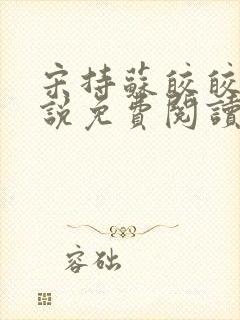 宋持蘇皎皎
說免費閱讀
容础